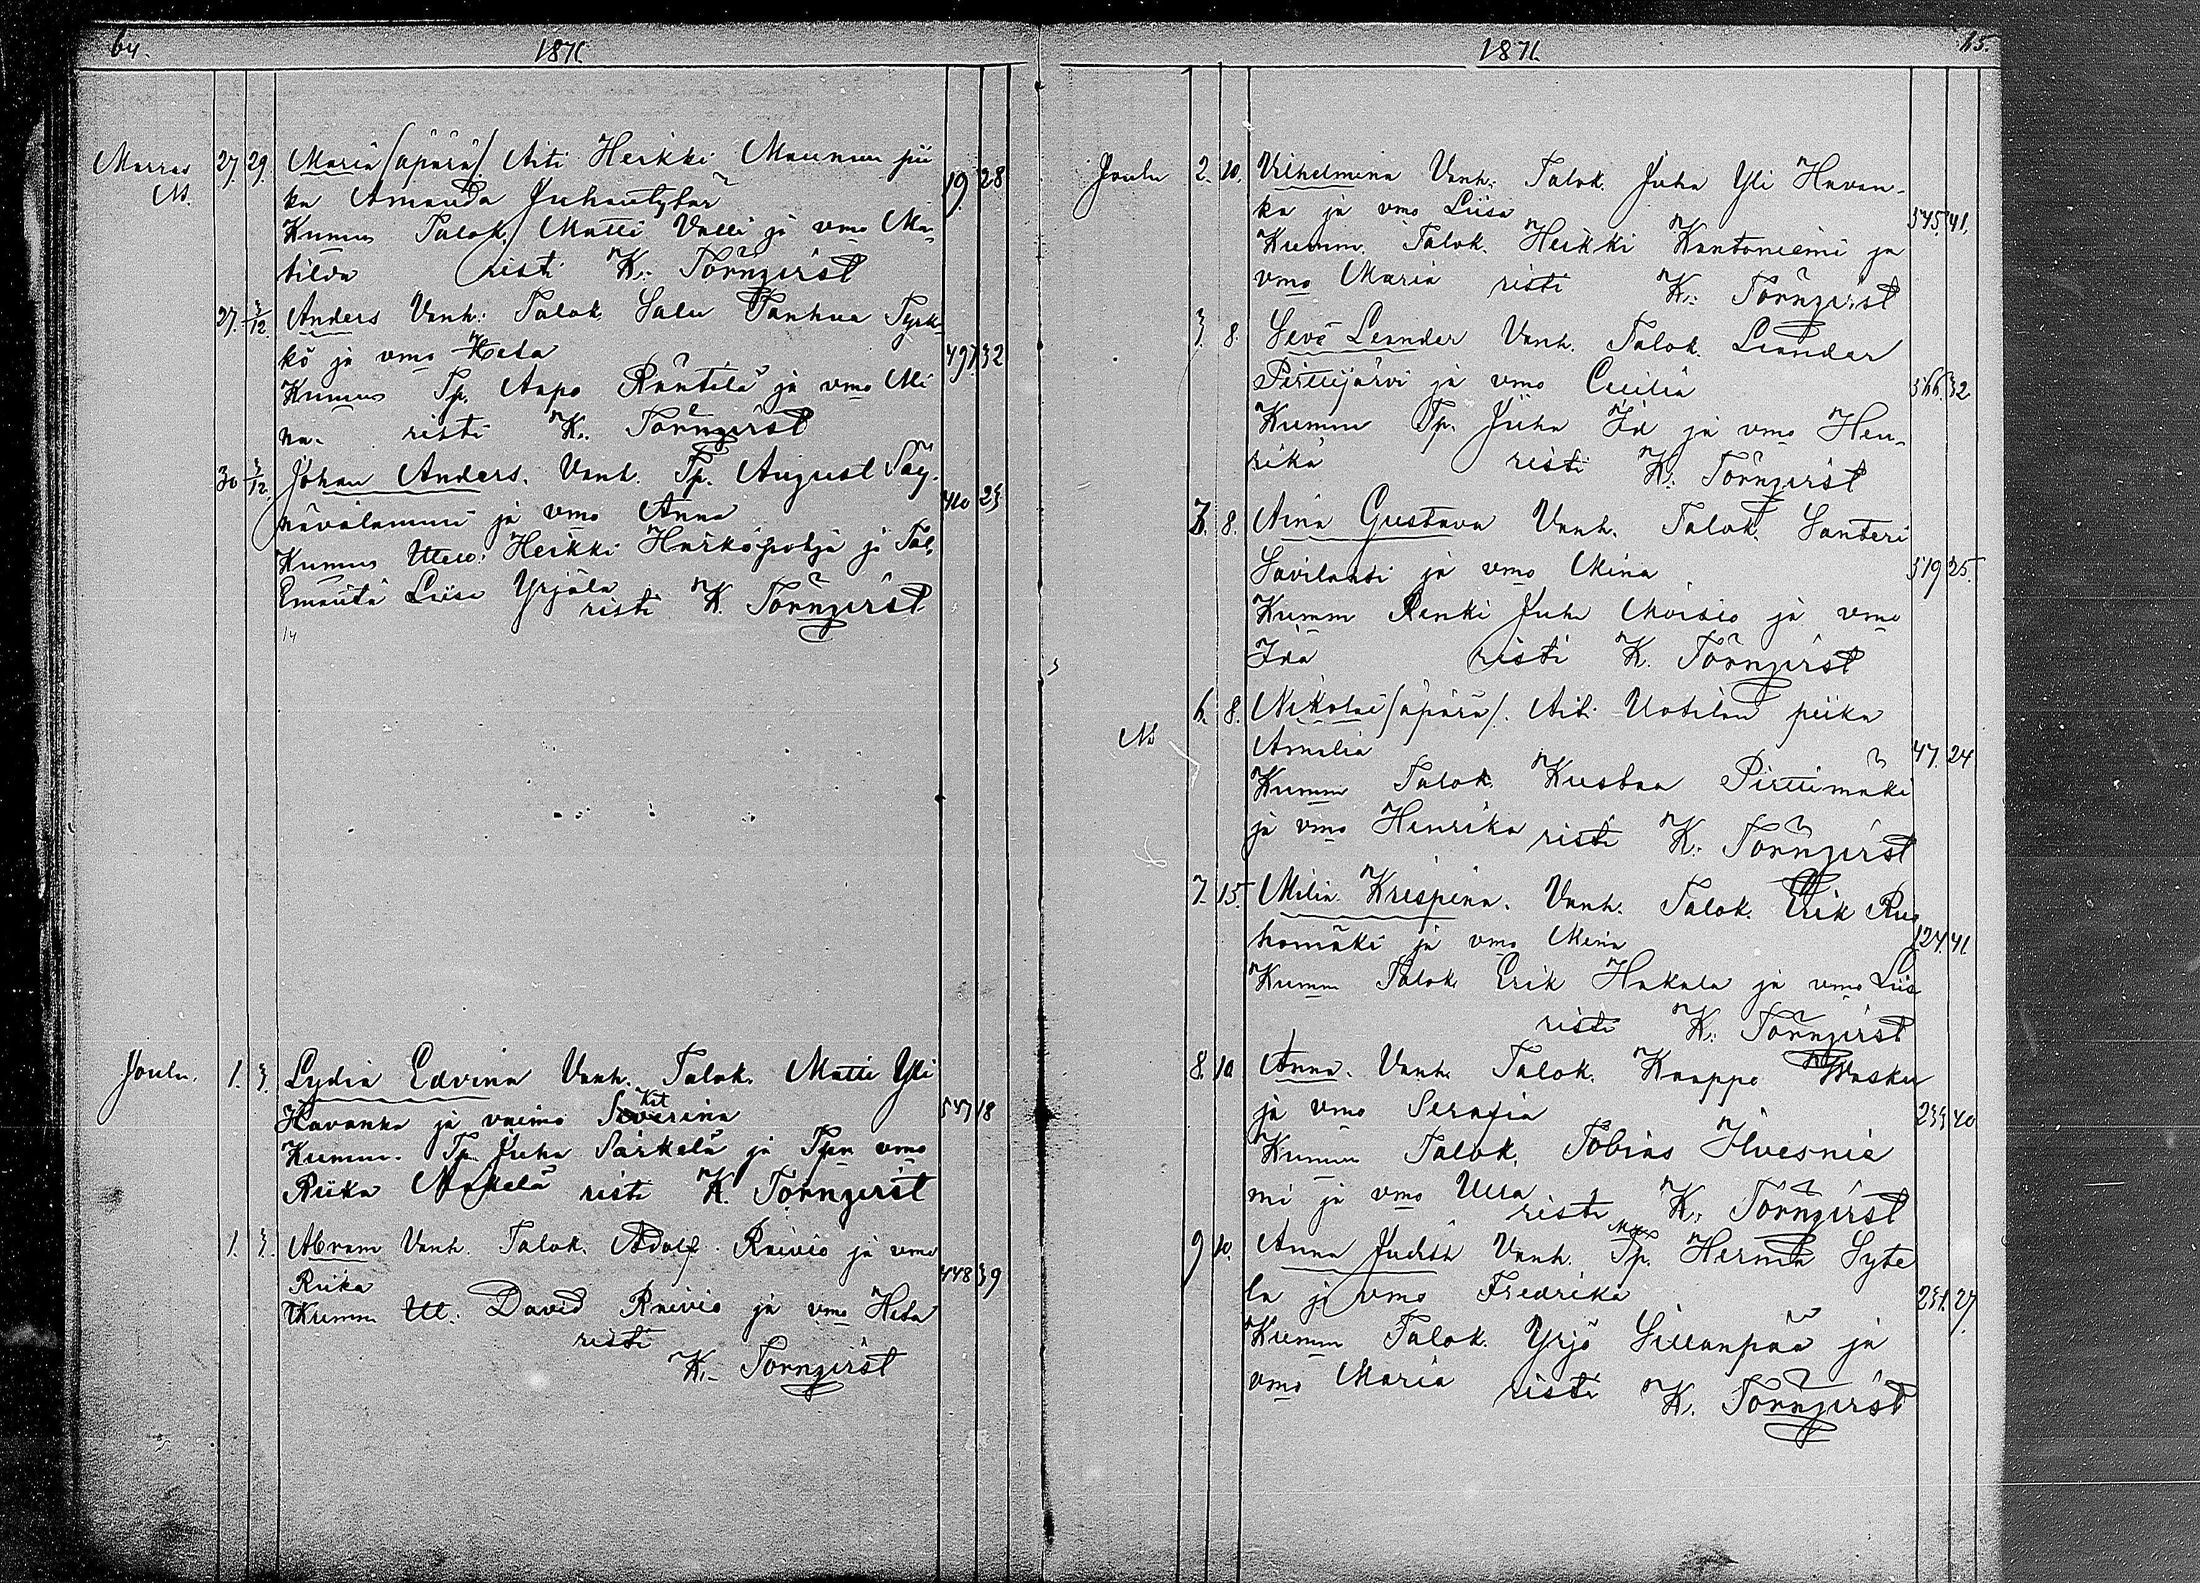 64.
1871.
Marras 27. 29. Maria (äpärä). Äiti Heikki Maunun pii
N. ka Amanda Juhantytär 19. 28
Kumm Talok. Matti Valli ja vmo Ma-
tilda risti K. Törnqvist
27. 3/12 Anders Vanh. Talok. Salu Panhua Tyrk-
kö ja vmo Heta 497. 32
Kumm Tp. Aapo Räntelä ja vmo Mi
na. risti K. Törnqvist
30 3/12. Johan Anders. Vanh. Tp. August Säy-
näväläminni ja vmo Anna 410 23
Kumm Heikki Harköpohja ja Tal.
Emäntä Liisa Yrjälä risti K. Törnqvist
14
Joulu. 1. 3. Lydia Edvina Vanh. Talok. Matti Yli
Havanka ja vaimo Severina 547 18
Kumm. Tp. Juha Särkelä ja Tpn vmo
Riika Mäkelä risti K. Törnqvist
1. 3. Abram Vanh. Talok. Adolf Raivio ja vmo
Riika 448 39
Kumm David Raivio ja vmo Heta
risti
K. Törnqvist
1871.
65.
Joulu 2. 10. Vilhelmina Vanh. Talok. Juha Yli Havan-
ka ja vmo Liisa 545. 41.
Kumm. Talok. Heikki Kantoniemi ja
vmo Maria risti K. Törnqvist
3. 8. Sevé Leander Vanh. Talok. Leander
Pirttijärvi ja vmo Cecilia 566. 32
Kumm Tp. Juha ja vmo Hen-
rika risti K. Törnqvist
3. 8. Aina Gustava Vanh. Talok. Santeri
Savilahti ja vmo Mina 519 25.
Kumm Renki Juha Moisio ja vmo
Ida risti K. Törnqvist
6. 8. Nikolai (äpärä). Äiti Uotilan piika
No Amalia 47. 24
Kumm Talok. Kustaa Pirttimäki
ja vmo Henrika risti K. Törnqvist
7. 15. Milia Krispina. Vanh. Talok. Erik Ru
homäki ja vmo Mina 124. 41
Kumm Talok Erik Hakala ja vmo Liisa
risti K. Törnqvist
8. 10 Anna. Vanh. Talok. Kaappo Wasku
ja vmo Serafia 233 40
Kumm Talok. Tobias Ilvesnie
mi ja vmo Ulla risti K. Törnqvist
9 10. Anna Judith Vanh. Tp. Herman Syte
la ja vmo Fredrika 231. 27.
Kumm Talok. Yrjö Sillanpää ja
vmo Maria risti K. Törnqvist